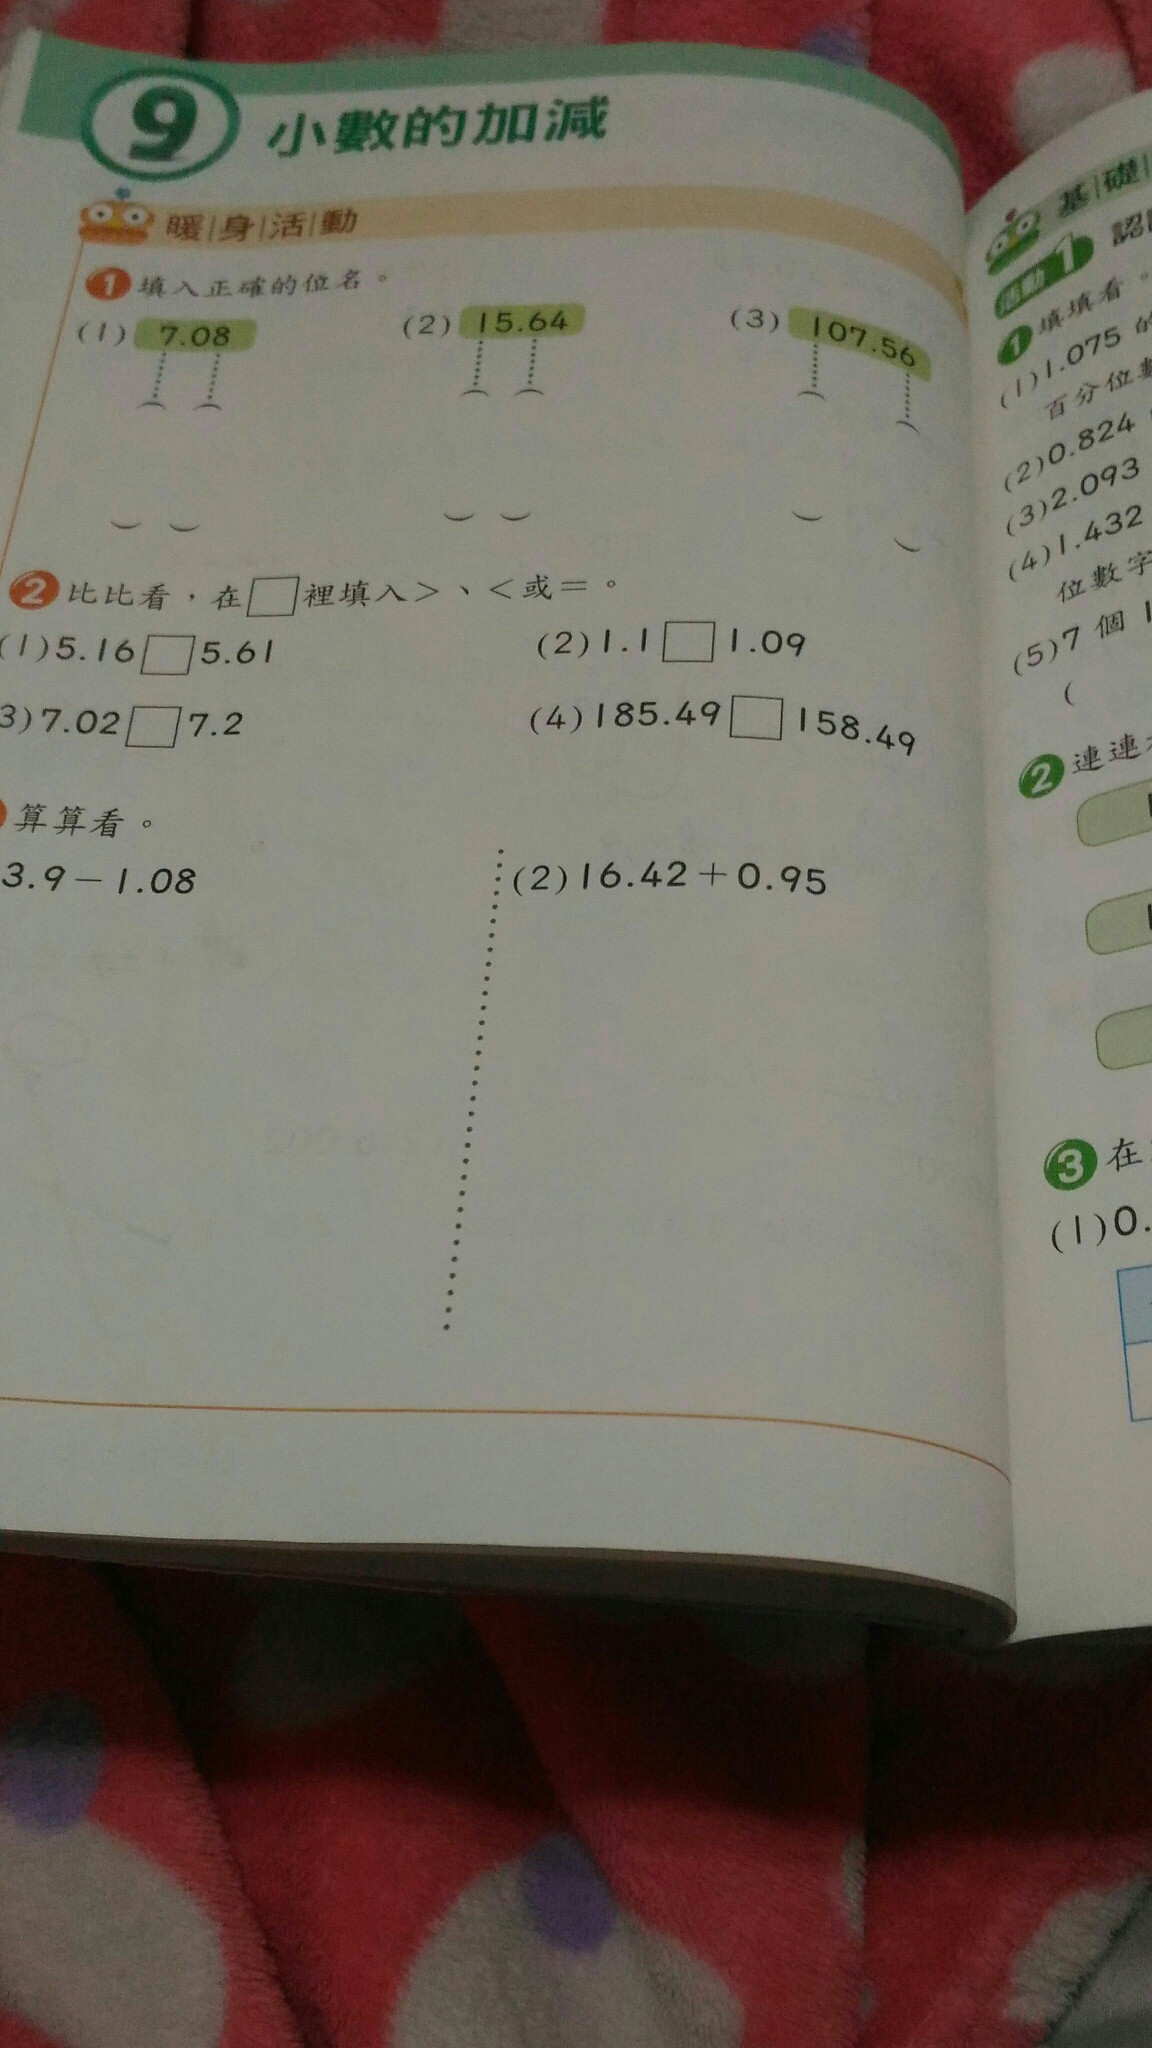 9 小數的加減
暖|身|活|動
1 填入正確的位名。
(1) 7.08 (2) 15.64 (3) 107.56
2 比比看，在□裡填入>、<或=。
(1)5.16□5.61 (2)1.1□1.09
3)7.02□7.2 (4)185.49□158.49
算算看。
3.9－1.08 (2)16.42＋0.95
基|礎|
活動1
1 填填看。
(1)1.075 的
百分位數
(2)0.824
(3)2.093
(4)1.432
位數字
(5)7 個 1
(
2 連連
3 在
(1)0.